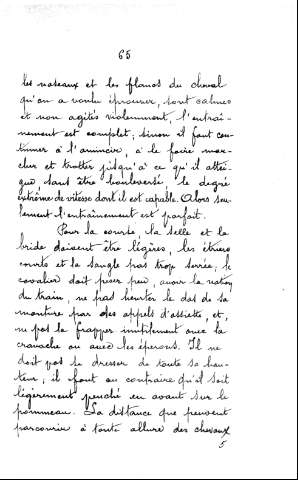 65
les naseaux et les flancs du cheval
qu'on a voulu éprouver, sont calmes
et non agités violemment, l'entraî-
nement est complet; sinon il faut con-
tinuer à l'amincir, à le faire mar-
cher et trotter jusqu'à ce qu'il attei-
gne sans être bouleversé, le degré
extrême de vitesse dont il est capable. Alors seu-
lement l'entraînement est parfait.
Pour la course, la selle et la
bride doivent être légères, les étriers
courts et la sangle pas trop serrée; le
cavalier doit peser peu, avoir la notion
du train, ne pas heurter le dos de sa
monture par des appels d'assiette, et,
ne pas la frapper inutilement avec la
cravache ou avec les éperons. Il ne
doit pas se dresser de toute sa hau-
teur; il faut au contraire qu'il soit
légèrement penché en avant sur le
pommeau. La distance que peuvent
parcourir à toute allure des chevaux
5